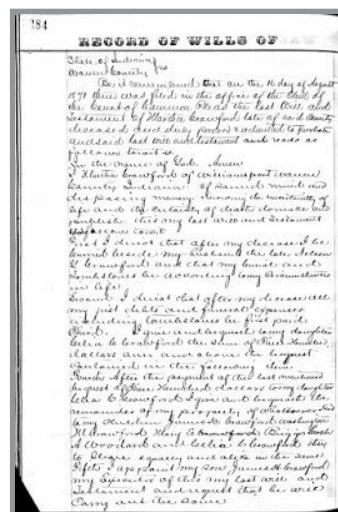 184
RECORD OF WILLS OF
State of Indiana
Warren County
Be it remembered that on the 16 day of August
1871 there was filed in the office of the Clerk of
the Court of Common Pleas the last Will and
Testament of Crawford late of said County
deceased and duly proved & admitted to probate
and said last will and testament and reads as
follows to wit
In the name of God Amen
I Crawford of Williamsport Warren
County Indiana of sound mind and
disposing memory knowing the uncertainty of
life and the certainty of death do make and
publish this my last will and Testament
as follows to wit
First I direct that after my decease I be
buried beside my husband the late Nelson
Crawford and that my burial and
Tombstones be according to my circumstances
in life
Second I direct that after my decease all
my just debts and funeral expenses
including tombstones be first paid
Third I give and bequeath to my daughter
Celia C Crawford the sum of Three Hundred
dollars over and above the bequest
contained in the following item
Fourth After the payment of the last mentioned
bequest of Three Hundred dollars to my daughter
Celia C Crawford I give and bequeath the
remainder of my property of whatsoever kind
to my children James Crawford Washington
Crawford Crawford
Woodard and Celia C Crawford they
to share equally and alike in the same
Fifth I appoint my son James H Crawford
my Executor of this my last will and
Testament and request that he will
Carry out the same